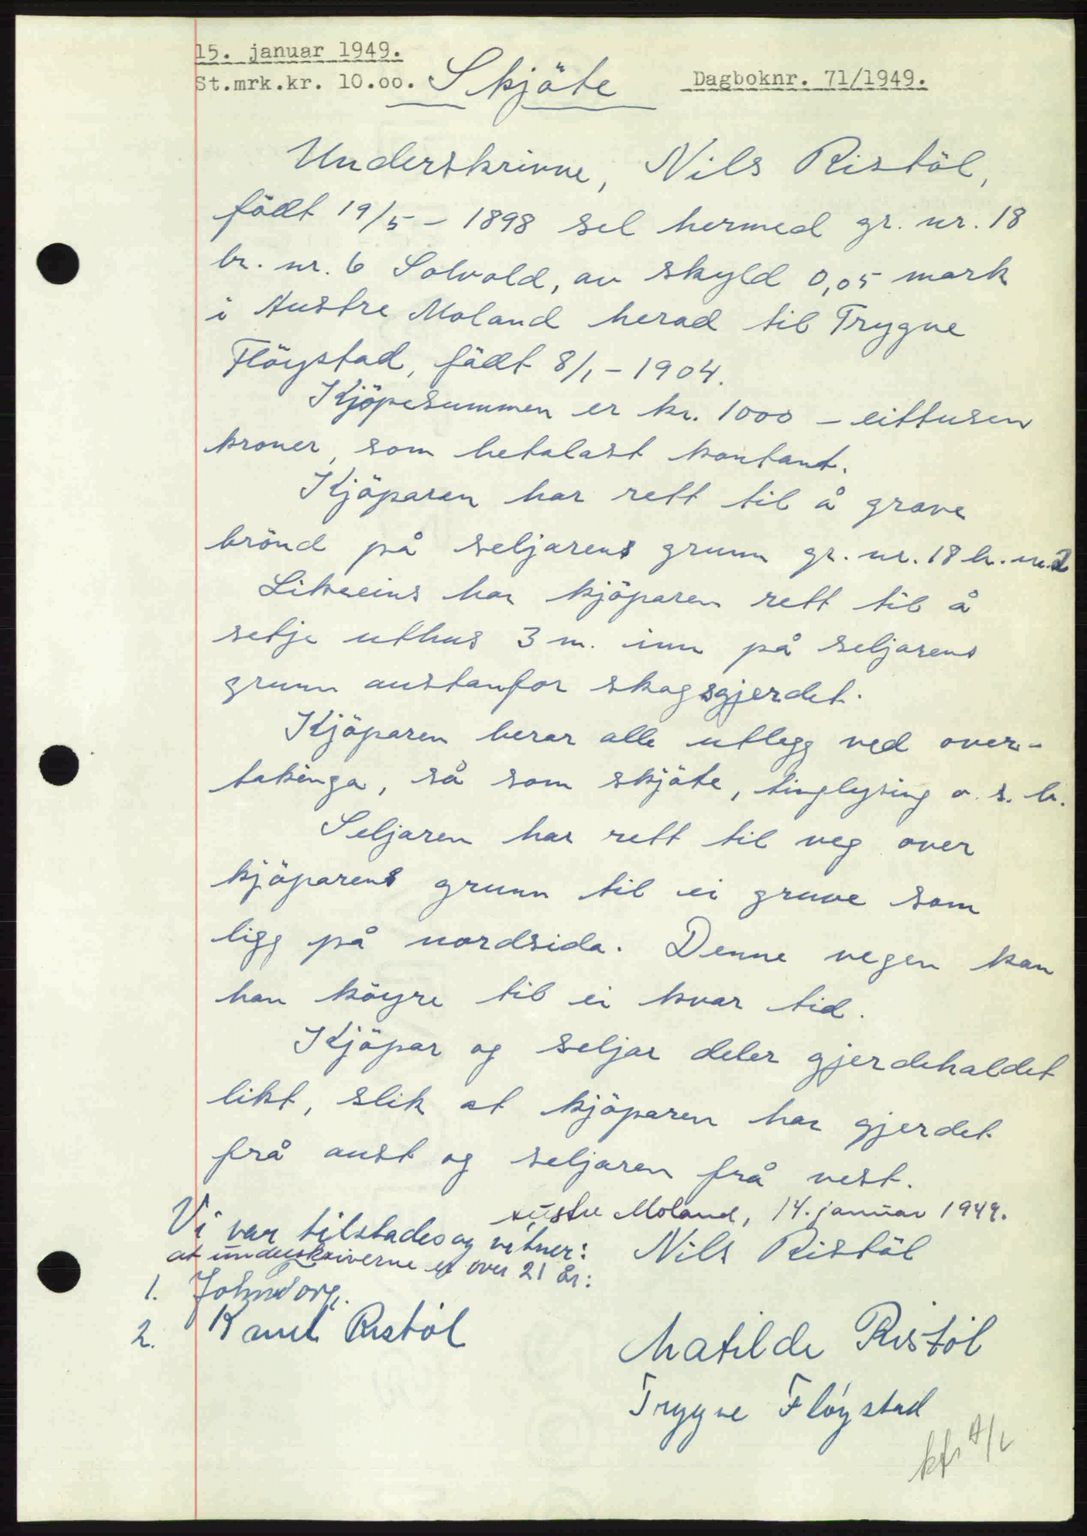 15. januar 1949.
St.mrk.kr. 10.00. Skjöte Dagboknr. 71/1949.
Underskrivne, Nils Ristöl,
födt 19/5 - 1898 sel hermed gr. nr. 18
br. nr. 6 Solvold, av skyld 0,05 mark
i Austre Moland herad til Trygve
Flöystad, födt 8/1 - 1904.
Kjöpesummen er kr. 1000 - eittusen
kroner, som betalast kontant.
Kjöparen har rett til å grave
brönd på seljarens grunn gr. nr. 18 br. nr. 2
Likeeins har kjöparen rett til å
setje uthus 3 m. inn på seljarens
grunn austanfor skogsgjerdet.
Kjöparen berar alle utlegg ved over-
takinga, så som skjöte, tinglysing o. s. b.
Seljaren har rett til veg over
kjöparens grunn til ei gruve som
ligg på nordsida. Denne vegen kan
han köyre til ei kvar tid.
Kjöpar og seljar deler gjerdehaldet
likt, slik at kjöparen har gjerdet
frå aust og seljaren frå vest.
Austre Moland, 14. januar 1949.
Vi var tilstades og vitner: Nils Ristöl
at underskriverne er over 21 år:
1. John
2. Knut Ristöl
Matilde Ristöl
Trygve Flöystad